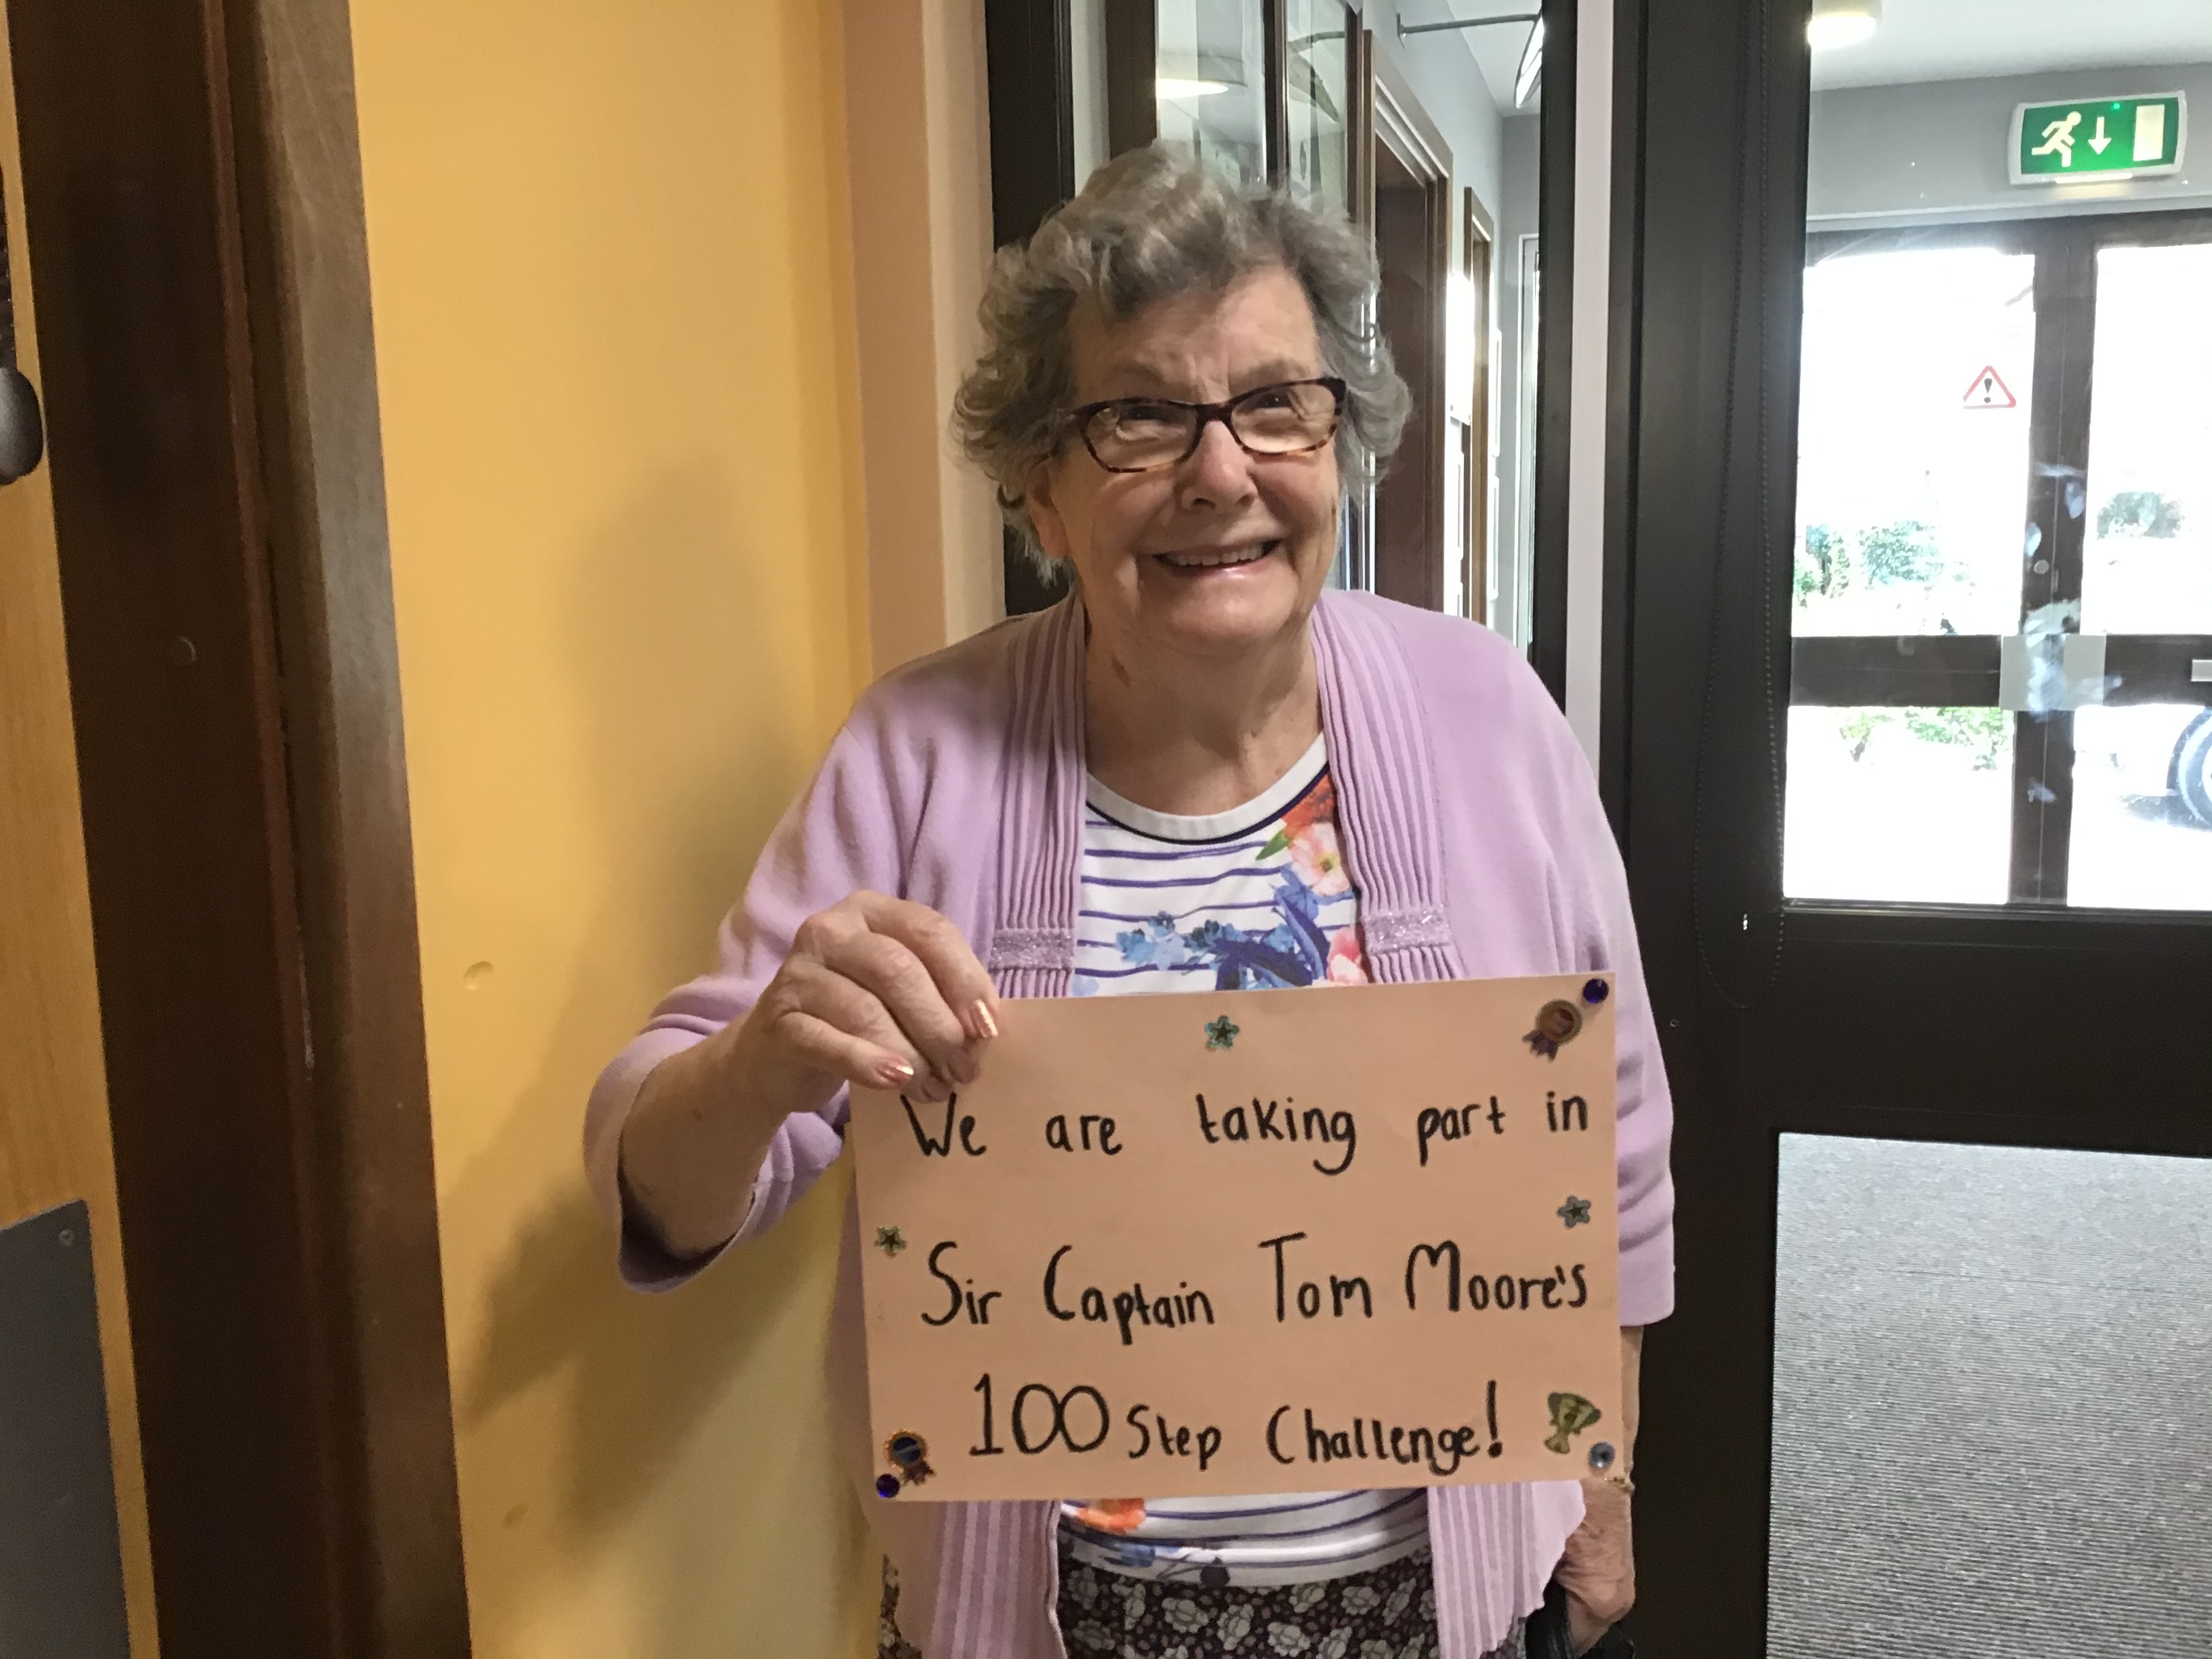 We are taking part in
Sir Captain Tom Moore's
100 Step Challenge!